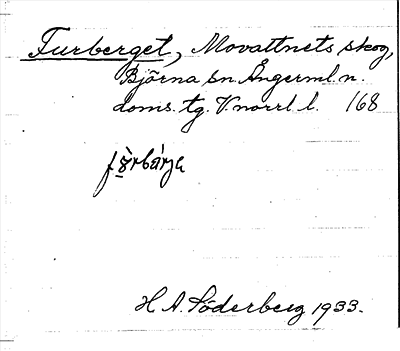 Furberget, Movattnets skog,
Björna sn. Ångerml. n.
doms. tg. V. norrl l. 168
H. A. Söderberg 1933.